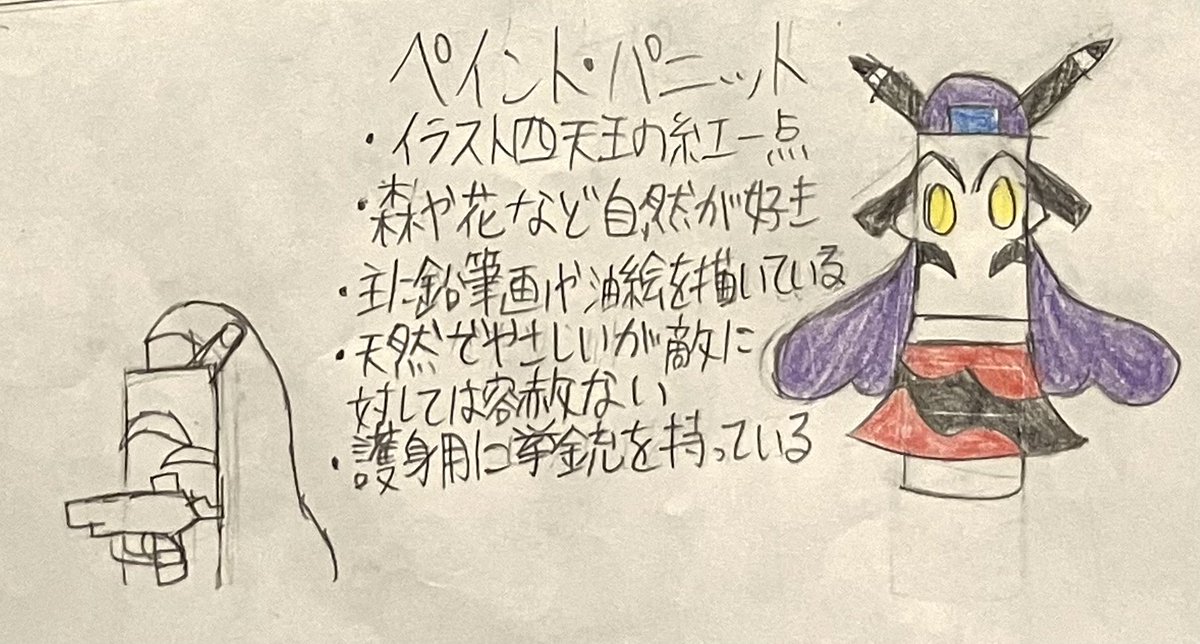 ペイント・パニット
・イラスト四天王の紅一点
・森や花など自然が好き
・主に鉛筆画や油絵を描いている
・天然でやさしいが敵に
対しては容赦ない
・護身用に拳銃を持っている